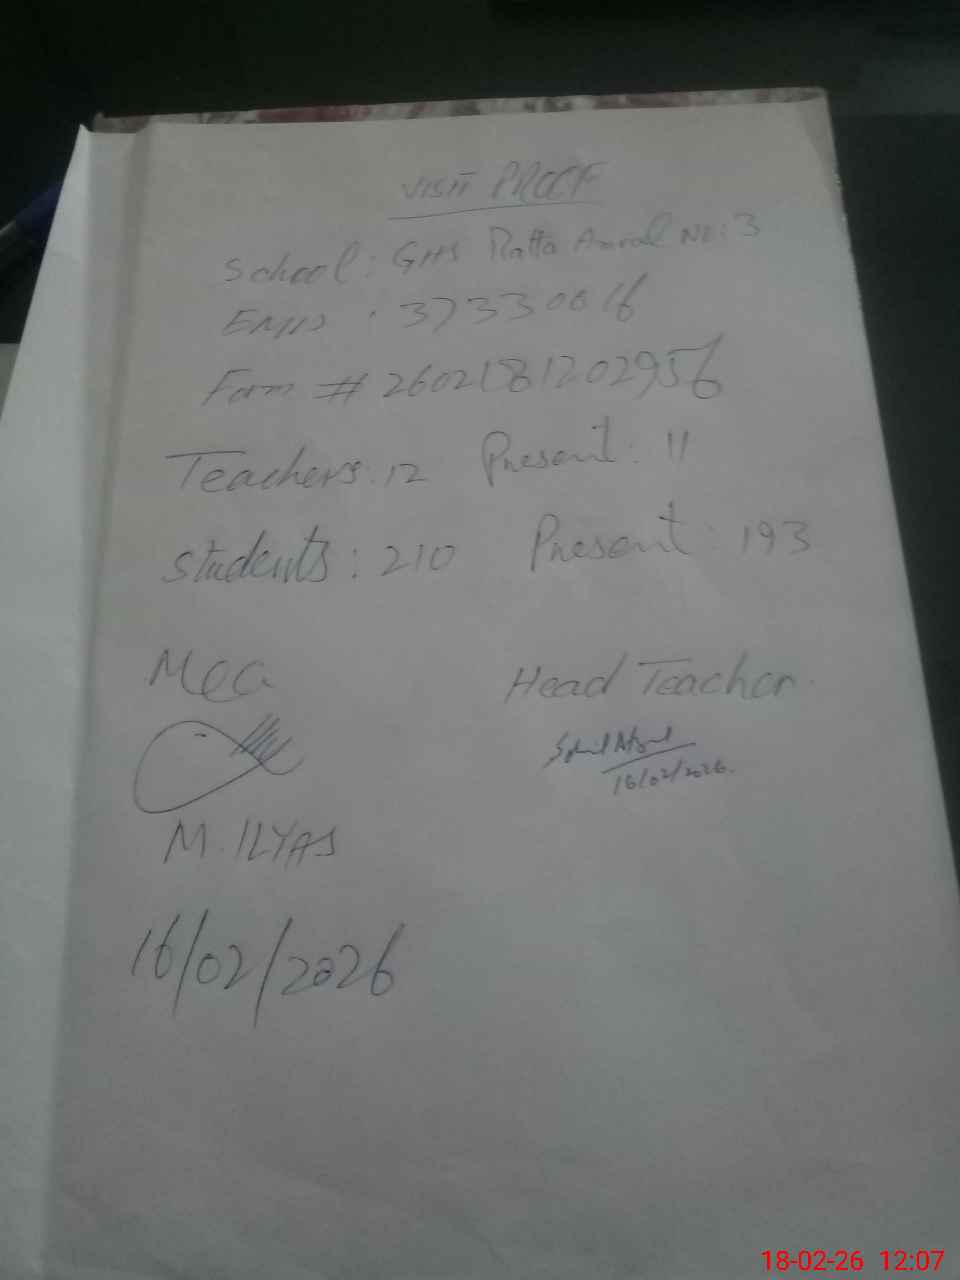 VISIT PROOF
School: GHS Ratta Amral No: 3
EMIS: 37330016
Form # 2602181202956
Teachers: 12 Present: 11
Students: 210 Present: 193
MEA Head Teacher
16/02/2026.
M. ILYAS
16/02/2026
18-02-26 12:07